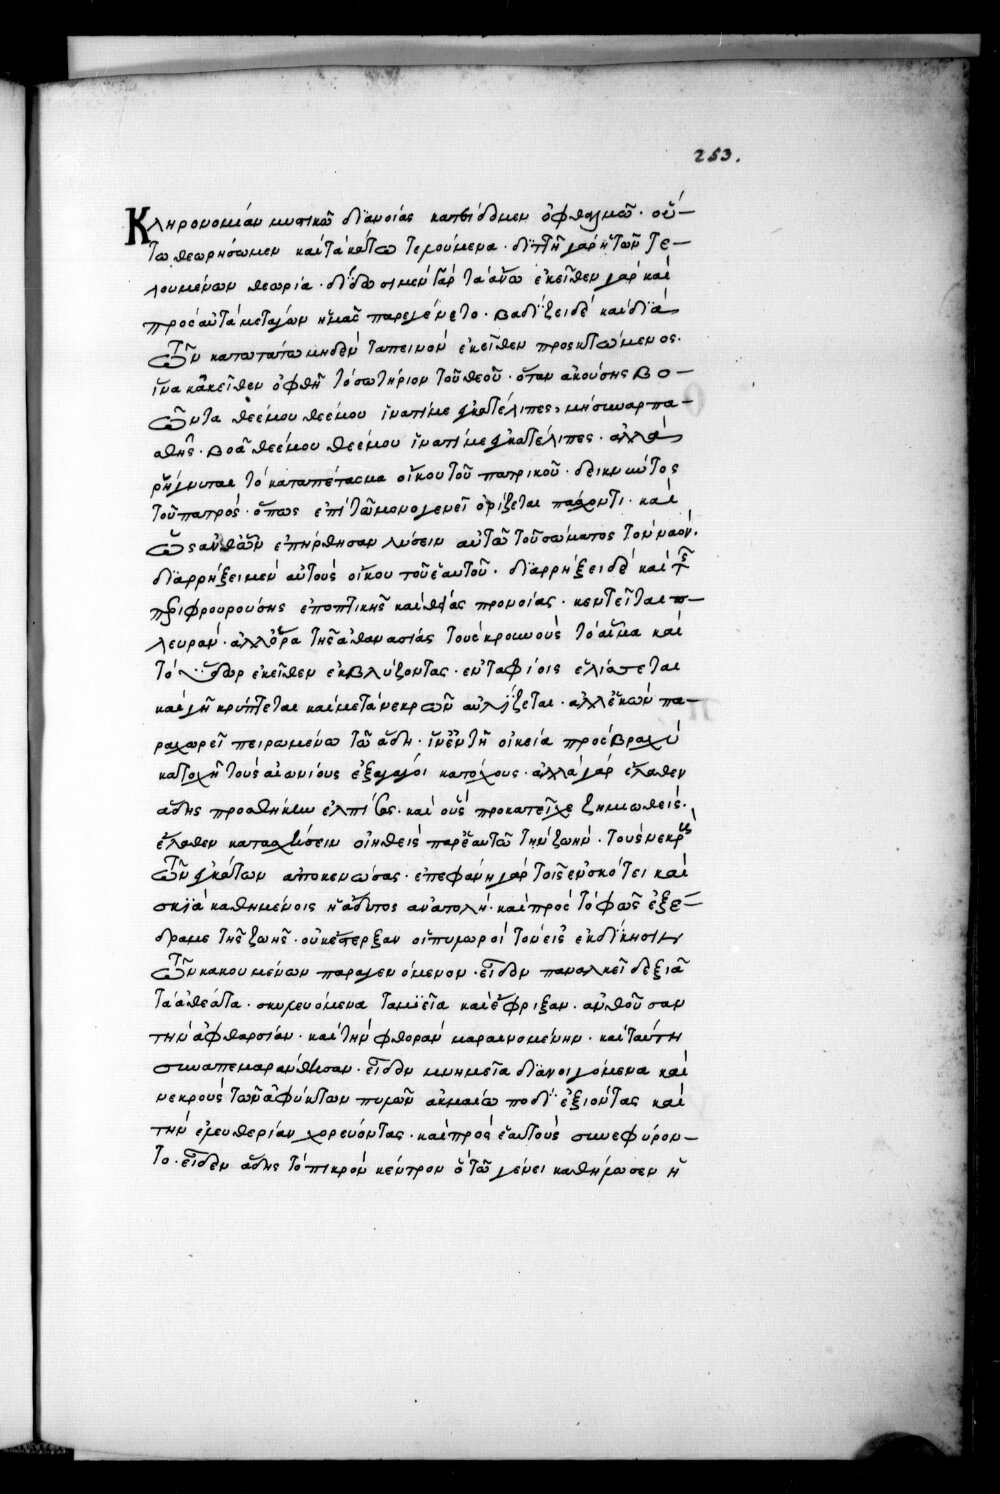 253.
Κληρονομίαν μυστικῶ διανοίας κατείδομεν ὀφθαλμῶ· οὕ-
τω θεωρήσωμεν καὶ τὰ κάτω τελούμενα· διττὴ γὰρ ἡ τῶν τε-
λουμένων θεωρία· δίδωσι μὲν γὰρ τὰ ἄνω ἐκεῖθεν γὰρ καὶ
πρὸς αὐτὰ μετάγων ἡμᾶς παρεγένετο· βαδίζει δὲ καὶ διὰ
τῶν κατωτάτω μηδὲν ταπεινὸν ἐκεῖθεν προσκτώμενος·
ἵνα κἀκεῖθεν ὀφθῆ τὸ σωτήριον τοῦ θεοῦ· ὅταν ἀκούσης βο-
ῶντα θεέ μου θεέ μου ἵνα τί με ἐγκατέλιπες, μὴ συναρπα-
σθῆς· βοᾶ θεέ μου θεέ μου ἵνα τί με ἐγκατέλιπες· ἀλλὰ
ῥήγνυται τὸ καταπέτασμα οἴκου τοῦ πατρικοῦ· δεικνύντος
τοῦ πατρὸς· ὅπως ἐπὶ τῶ μονογενεῖ ὀρίζεται πάσχοντι· καὶ
ὡς ἀνθ' ὧν ἐπήρθησαν λύσειν αὐτῶ τοῦ σώματος τὸν ναόν·
διαρρήξει μὲν αὐτοὺς οἴκου τοῦ ἑαυτοῦ· διαρρήξει δὲ καὶ τῆς
περιφρουρούσης ἐποπτικῆς καὶ θείας προνοίας· κεντεῖται π-
λευρὰν· ἀλλ' ὅρα τῆς ἀθανασίας τοὺς κρουνοὺς τὸ αἷμα καὶ
τὸ ὕδωρ ἐκεῖθεν ἐκβλύζοντας· ἐνταφίοις ἑλίσσεται
καὶ γῆ κρύπτεται καὶ μετὰ νεκρῶν αὐλίζεται· ἀλλ' ἑκὼν πα-
ραχωρεῖ πειρωμένω τῶ ἅδη· ἵν' ἐν τῆ οἰκεία πρὸς βραχὺ
κατοχῆ τοὺς αἰωνίους ἐξαγάγοι κατόχους· ἀλλὰ γὰρ ἔλαθεν
ἅδης προσθήκην ἐλπίσας· καὶ οὓς προκατεῖχε ζημιωθείς·
ἔλαθεν κατασχήσειν οἰηθεὶς παρ' ἑαυτῶ τὴν ζωήν· τοὺς νεκροὺς
τῶν ἐγκάτων ἀποκενώσας· ἐπεφάνη γὰρ τοῖς ἐν σκότει καὶ
σκιᾶ καθημένοις ἡ ἄδυτος ἀνατολή· καὶ πρὸς τὸ φῶς ἐξέ-
δραμε τῆς ζωῆς· οὐκ ἔστερξαν οἱ πυλωροὶ τὸν εἰς ἐκδίκησιν
τῶν κακουμένων παραγενόμενον· εἶδεν παναλκεῖ δεξιᾶ
τὰ ἀθέατα· σκυλευόμενα ταμιεῖα καὶ ἔφριξαν· ἀνθοῦσαν
τὴν ἀφθαρσίαν· καὶ τὴν φθορὰν μαραινομένην· καὶ ταύτη
συναπεμαράνθησαν· εἶδεν μνημεῖα διανοιγόμενα καὶ
νεκροὺς τῶν ἀφύκτων πυλῶν ἀκμαίω ποδὶ ἐξιόντας καὶ
τὴν ἐλευθερίαν χορεύοντας· καὶ πρὸς ἑαυτοὺς συνεφύρον-
το· εἶδεν ἅδης τὸ πικρὸν κέντρον ὃ τῶ γένει καθήλωσεν ἡ